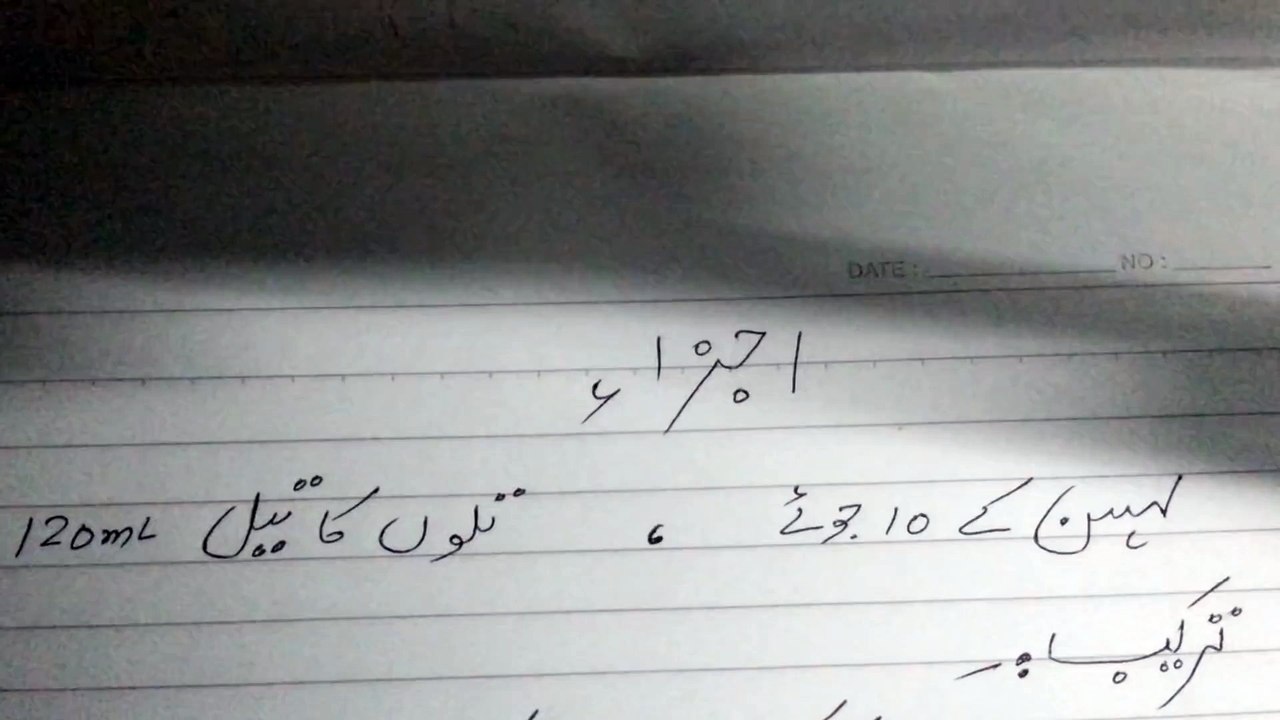 DATE: NO:
اجزاء
لہسن کے 10 جوئے ، تلوں کا تیل 120mL
ترکیب:-